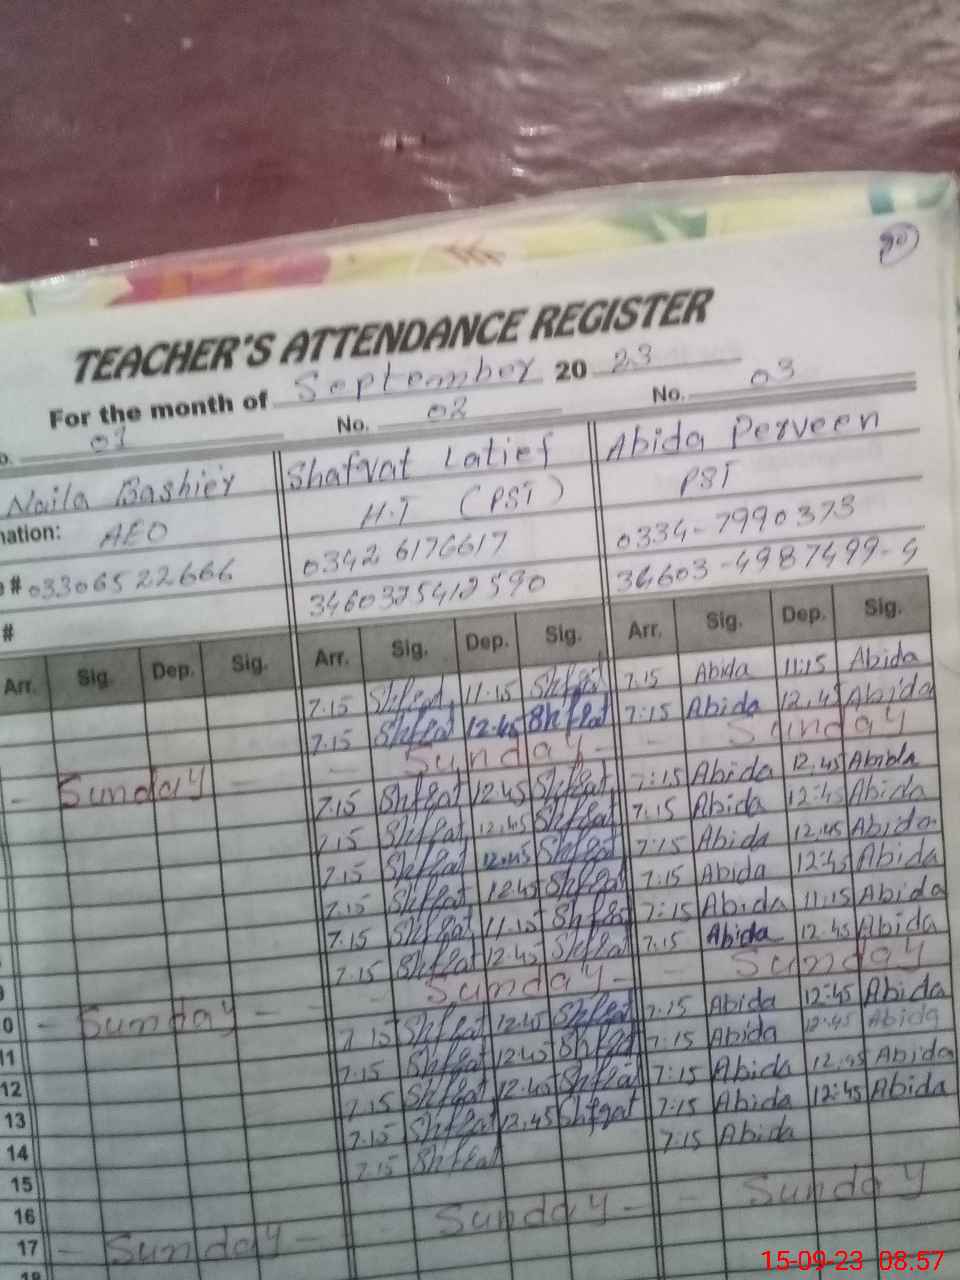 20
TEACHER'S ATTENDANCE REGISTER
For the month of September 20 23
o. 01 No. 02 No. 03
Naila Bashier Shafvat Latief Abida Perveen
nation: AEO H.T (PST) PST
e # 03306522666 0342 6176617 0334-7990373
# 3460325412590 34603-4987499-4
Arr. Sig. Dep. Sig. Arr. Sig. Dep. Sig. Arr. Sig. Dep. Sig.
7.15 Shfqat 11.15 Shfqat 7.15 Abida 11:15 Abida
7.15 Shfqat 12.45 Shfqat 7:15 Abida 12.45 Abida
- Sunday - - Sunday - - Sunday
7.15 Shfqat 12.45 Shfqat 7:15 Abida 12.45 Abida
7.15 Shfqat 12.45 Shfqat 7.15 Abida 12:45 Abida
7.15 Shfqat 12.45 Shfqat 7:15 Abida 12.45 Abida
7.15 Shfqat 12.45 Shfqat 7:15 Abida 12:45 Abida
7.15 Shfqat 11.15 Shfqat 7:15 Abida 11:15 Abida
9 7.15 Shfqat 12.45 Shfqat 7.15 Abida 12.45 Abida
10 - Sunday - - Sunday - - Sunday
11 7.15 Shfqat 12.45 Shfqat 7.15 Abida 12:45 Abida
12 7.15 Shfqat 12.45 Shfqat 7:15 Abida 12:45 Abida
13 7.15 Shfqat 12.45 Shfqat 7:15 Abida 12.45 Abida
14 7.15 Shfqat 12.45 Shfqat 7:15 Abida 12:45 Abida
15 7.15 Shfqat 7:15 Abida
16
17 - Sunday - Sunday - - Sunday
18
15-09-23 08.57